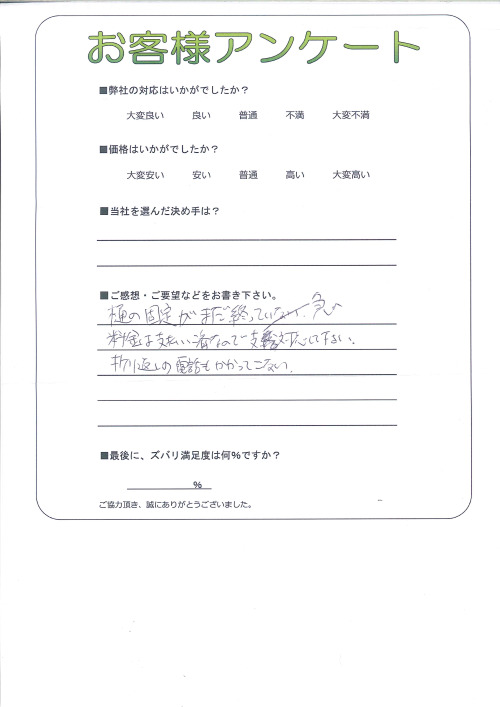 お客様アンケート
■弊社の対応はいかがでしたか？
大変良い 良い 普通 不満 大変不満
■価格はいかがでしたか？
大変安い 安い 普通 高い 大変高い
■当社を選んだ決め手は？
■ご感想・ご要望などをお書き下さい。
樋の固定がまだ終っていない。急
料金は支払い済なので対応して下さい。
折り返しの電話もかかってこない。
■最後に、ズバリ満足度は何%ですか？
%
ご協力頂き、誠にありがとうございました。